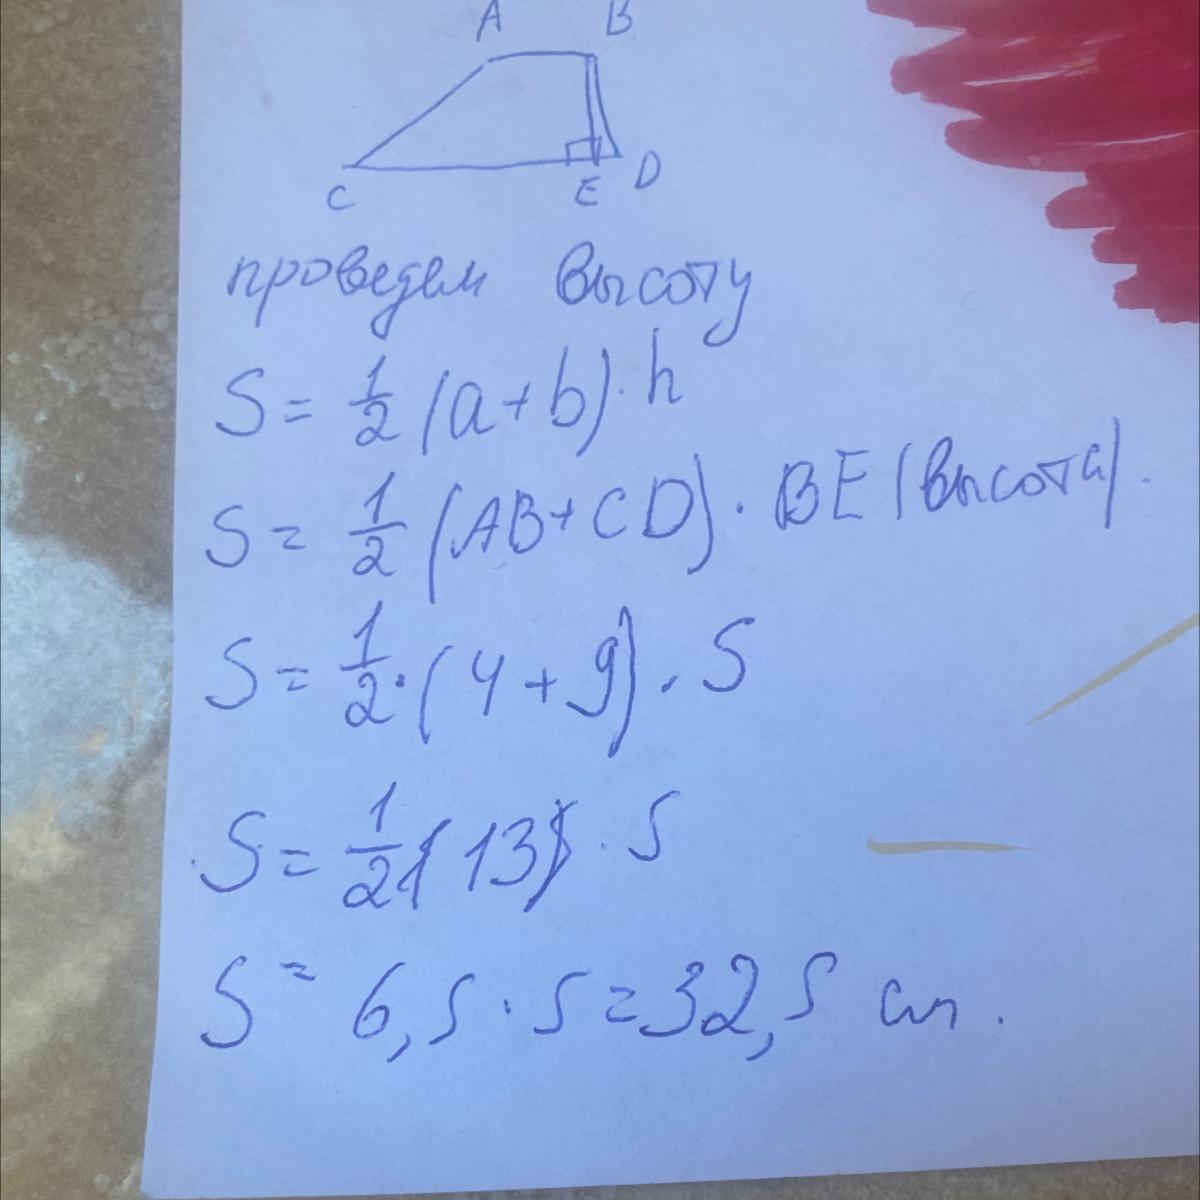 A B
C E D
проведем высоту
S = 1/2 (a + b) · h
S = 1/2 (AB + CD) · BE (высота).
S = 1/2 · (4 + 9) · 5
S = 1/2 (13) · 5
S = 6,5 · 5 = 32,5 см.